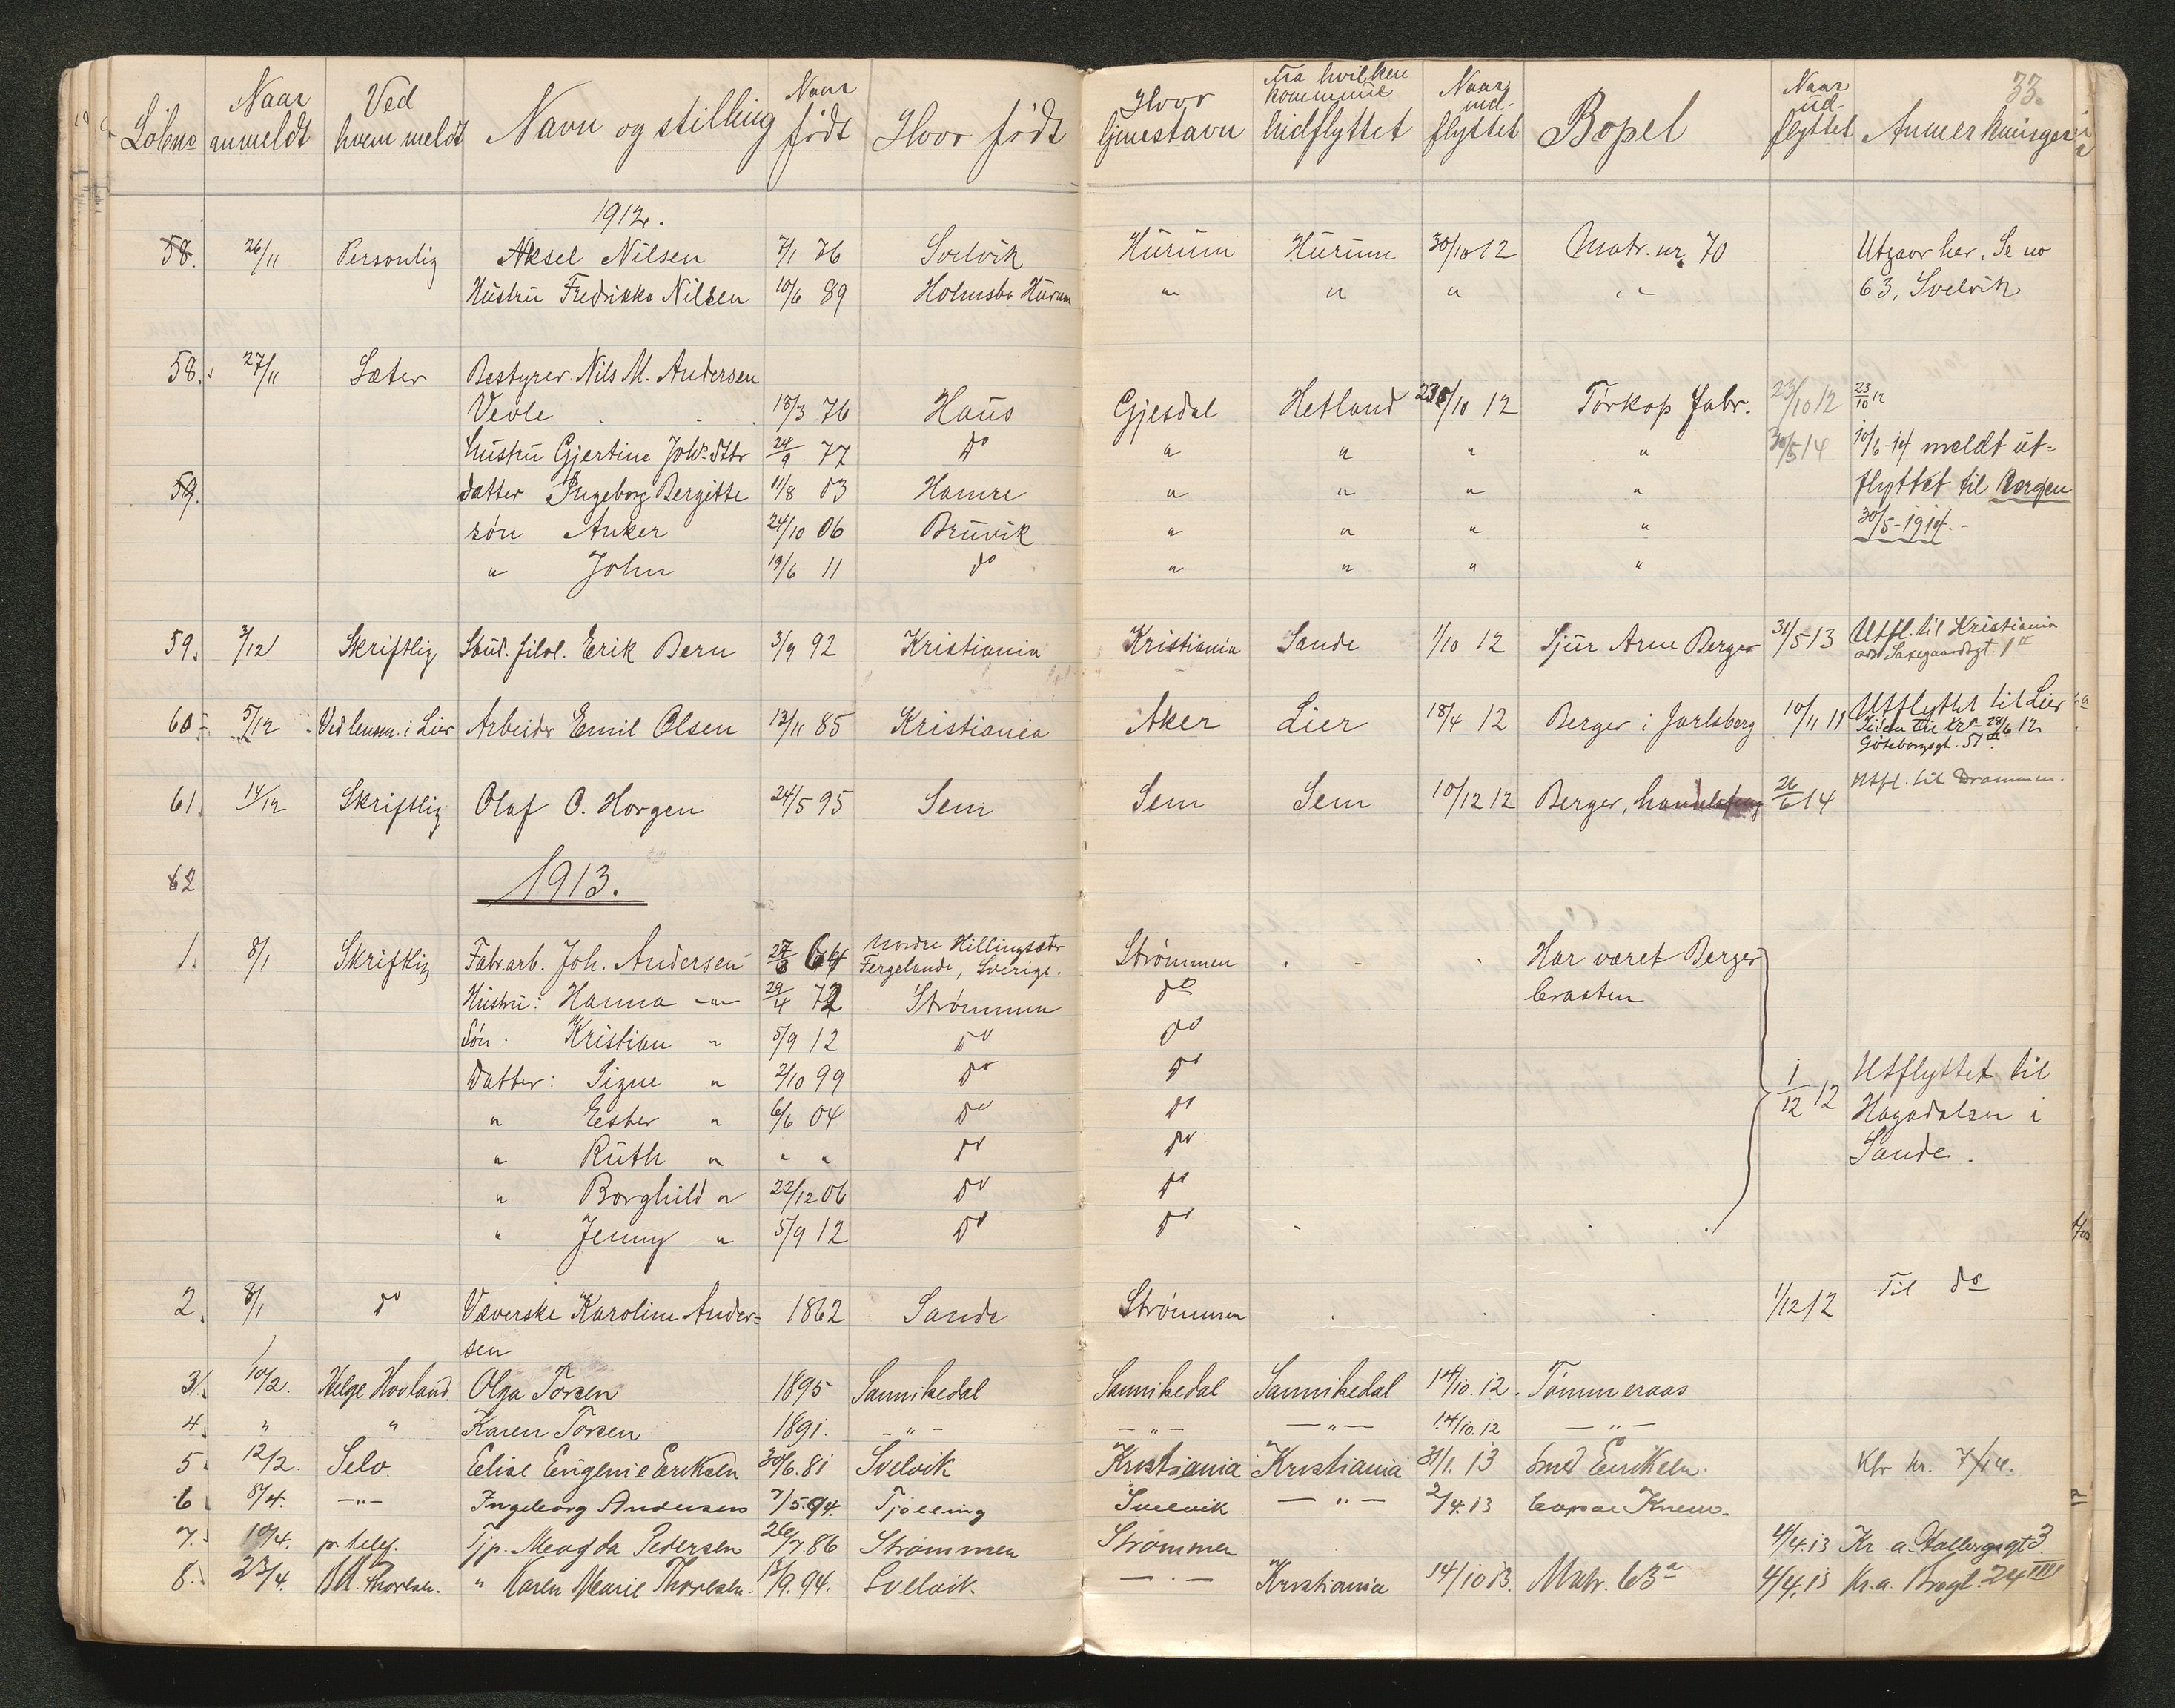 33.
Löbno Naar anmeldt Ved hvem meldt Navn og stilling Naar født Hvor født Hvor hjmestavn Fra hvilken kommune hidflyttet Naar ind-flyttet Bopel Naar ud-flyttet Anmerkninger
1912.
58. 26/11 Personlig Aksel Nilsen 7/1 76 Svelvik Hurum Hurum 30/10 12 Matr. nr. 70 Utgaar her. Se no
Hustru Fredrikke Nilsen 10/6 89 Holmsbo Hurum " " " " 63, Svelvik
58. 27/11 Sæter Bestyrer Nils M. Andersen
Vevle 18/3 76 Haus Gjesdal Hetland 23/10 12 Tørkop Fabr. 23/10 12 23/10 12
Hustru Gjertine Johs. dtr 24/9 77 do " " " " 30/5 14 10/6-14 meldt ut-
59. datter Ingeborg Bergitte 11/8 03 Hamre " " " " flyttet til Bergen
søn Anker 24/10 06 Bruvik " " " " 30/5-1914.-
" John 19/6 11 do " " " "
59. 3/12 Skriftlig Stud. filol. Erik Bern 3/9 92 Kristiania Kristiania Sande 1/10 12 Sjur Arne Berger 31/5 13 Utfl. til Kristiania
adr Saxegaardsgt. 1 II
60 5/12 Ved lensm. i Lier Arbeider Emil Olsen 13/11 85 Kristiania Aker Lier 18/4 12 Berger i Jarlsberg 10/11 11 Utflyttet til Lier
Siden til Kra 28/6 12
Göteborggt. 51 III.
61. 14/12 Skriftlig Olaf O. Horgen 24/5 95 Sem Sem Sem 10/12 12 Berger, 26/6 14 Utfl. til Drammen.
62 1913.
1. 8/1 Skriftlig Fabr.arb. Joh. Andersen 27/3 64 Nordre Hillingsæter Fergelanda, Sverige. Strømmen Har været Berger
Hustru: Hanna -"- 29/4 72 Strømmen do braaten
Søn: Kristian " 5/9 12 do do
Datter: Signe " 2/10 99 do do 1/12 12 Utflyttet til
" Ester " 6/6 04 do do Hagadalen i
" Ruth " " " do do Sande.
" Borghild " 22/12 06 do do
" Jenny " 5/9 12 do do
2. 8/1 do Væverske Karoline Ander= 1862 Sande Strømmen 1/12 12 Til do
sen
3. 10/2. Helge Hovland. Olga Torsen 1895 Sannikedal Sannikedal Sannikedal 14/10.12. Tømmeraas
4. " " Karen Torsen 1891. -"- -"- -"- 14/10.12 -"-
5. 12/2. Selv. Elise Eugenie Eriksen 30/6.81 Svelvik Kristiania Kristiania 31/1.13 Smed Eriksen. Kfr nr. 7/14.
6 8/4. -"- Ingeborg Andersen 7/5.94. Tjølling Svelvik -"- 2/4.13
7. 10/4. pr. teleg. Tjp. Magda Pedersen 26/7.86 Strømmen Strømmen 4/4.13 Kr.a. Hallergsgt 3
8. 23/4. M. Thorlsen. " Karen Marie Thorlsen. 13/9.94. Svelvik. -"- Kristiania 14/10 13. Matr. 63a 4/4.13 Kr.a. Brogt. 24 III